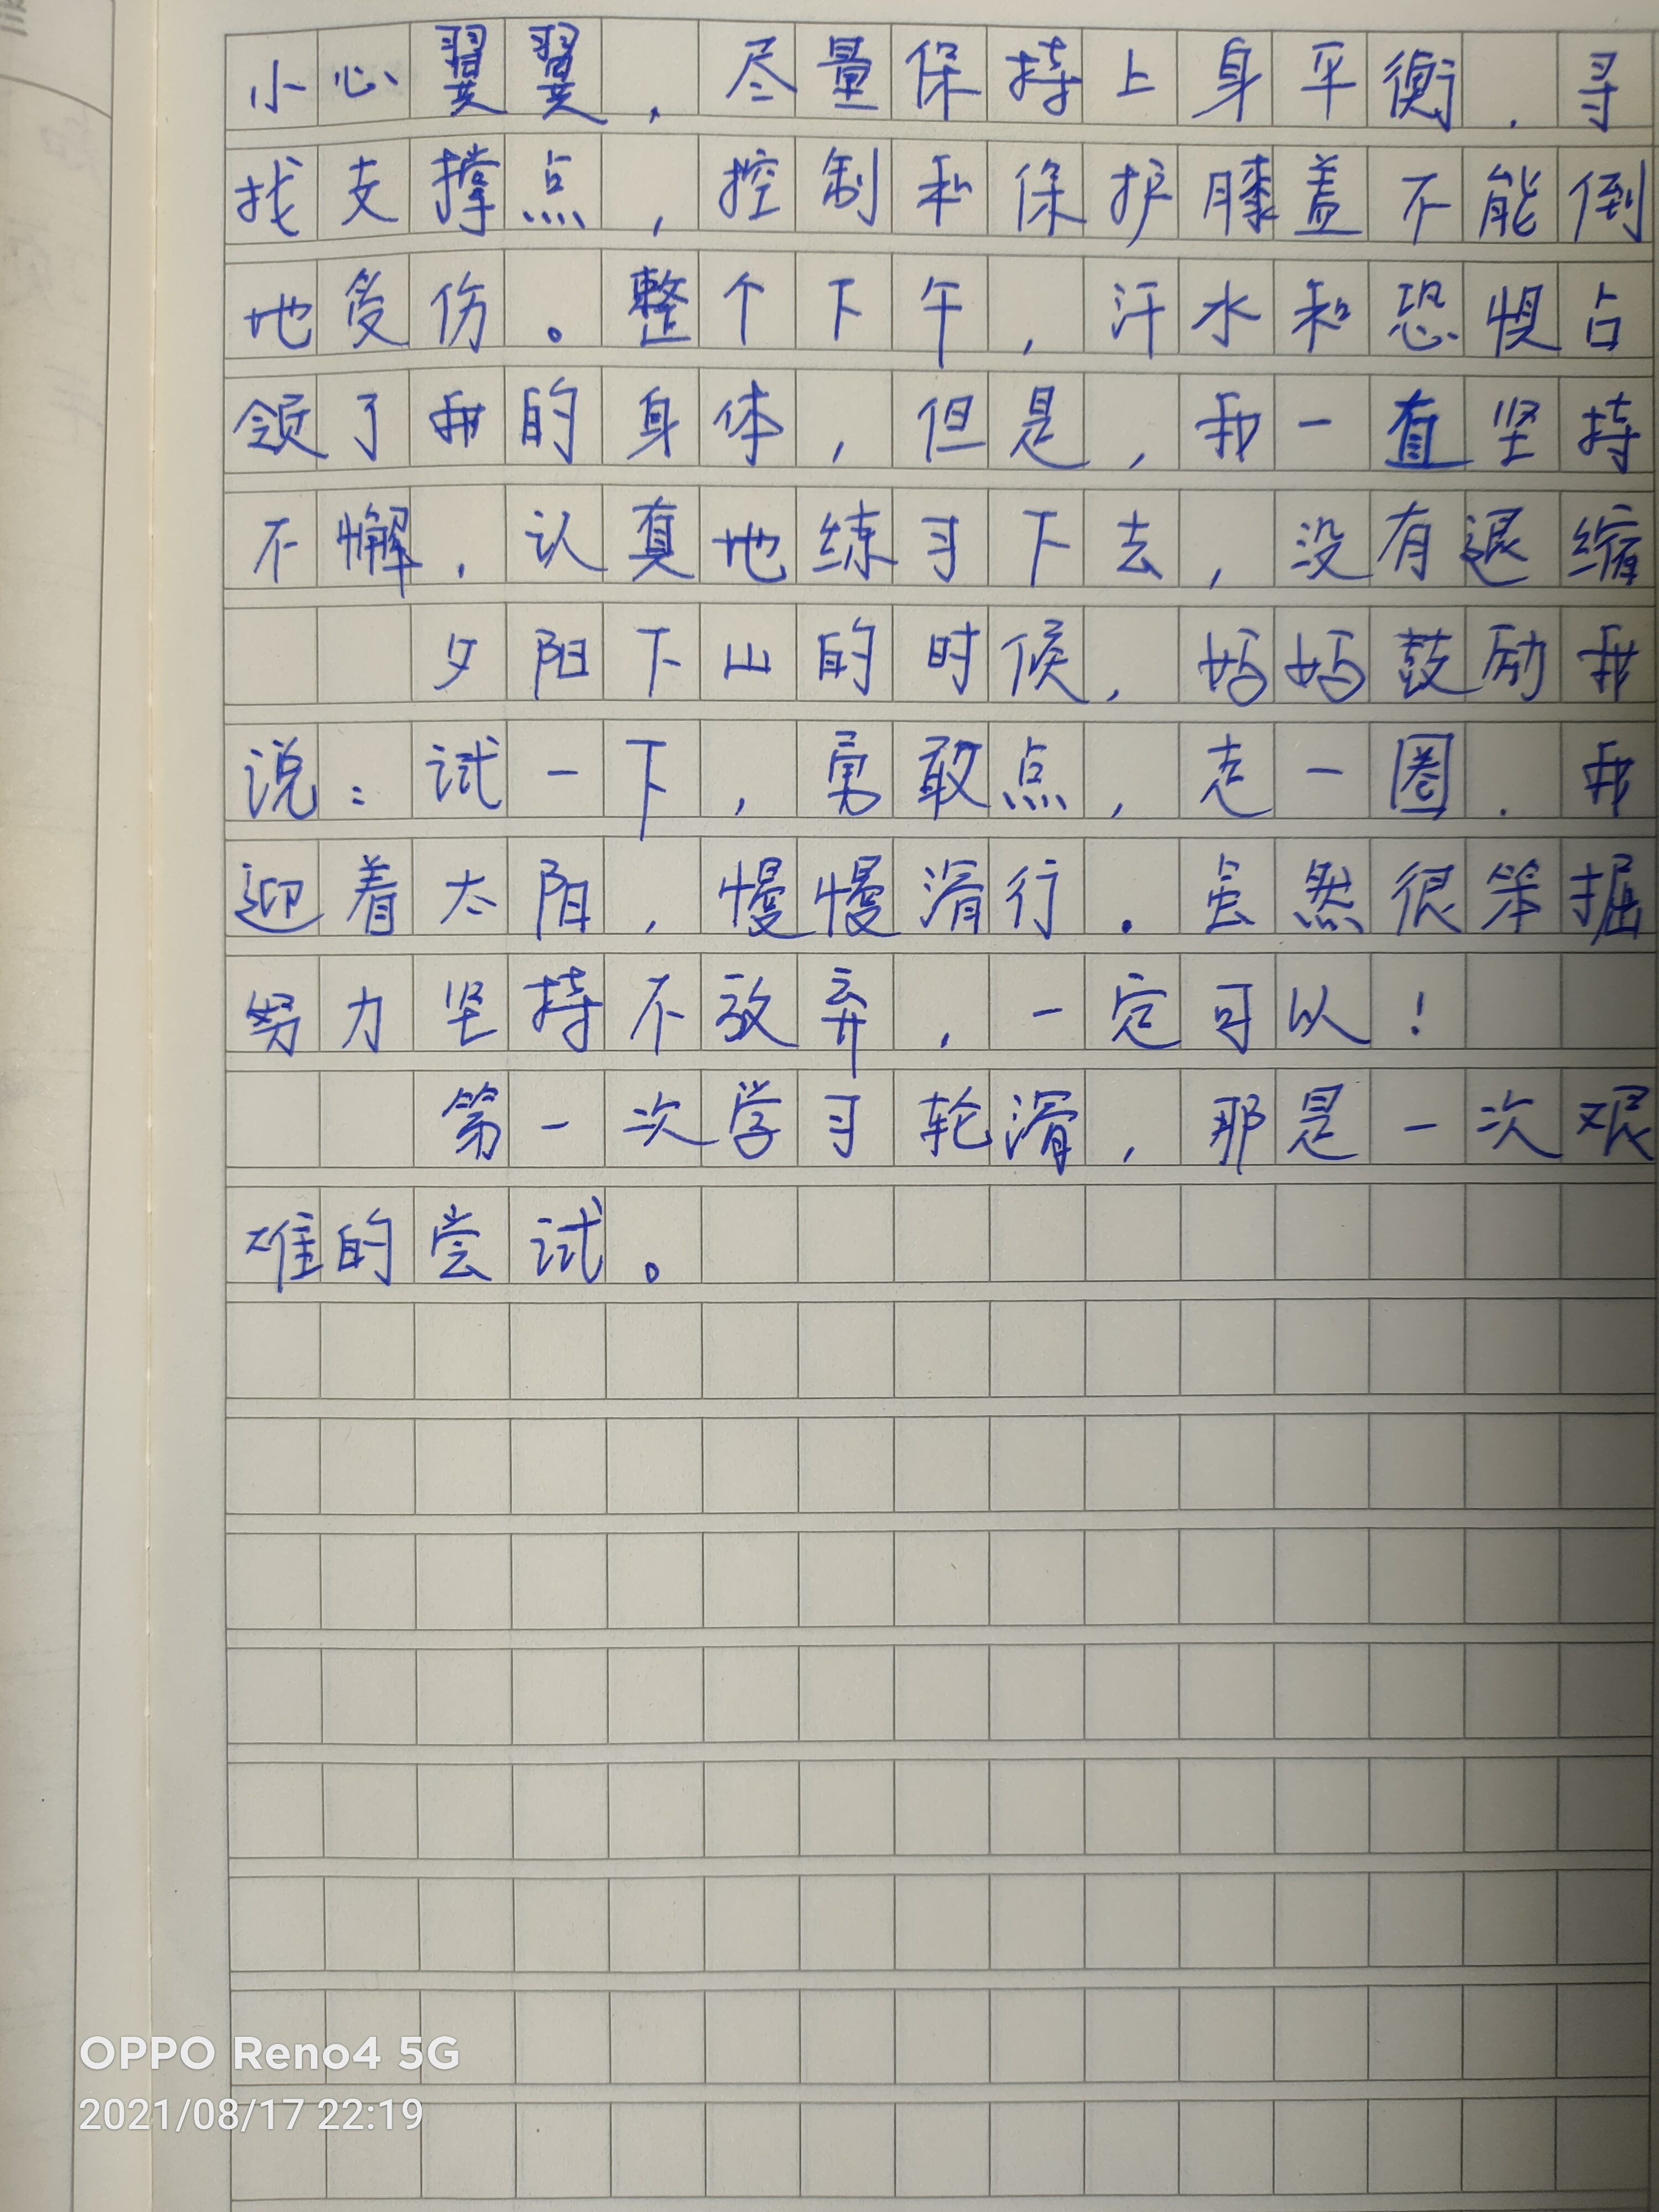 小心翼翼，尽量保持上身平衡.寻
找支撑点，控制和保护膝盖不能倒
地受伤。整个下午，汗水和恐惧占
领了我的身体，但是，我一直坚持
不懈，认真地练习下去，没有退缩
夕阳下山的时候，妈妈鼓励我
说：试一下，勇敢点，走一圈.我
迎着太阳，慢慢滑行.虽然很笨掘
努力坚持不放弃，一定可以！
第一次学习轮滑，那是一次艰
难的尝试。
OPPO Reno4 5G
2021/08/17 22:19